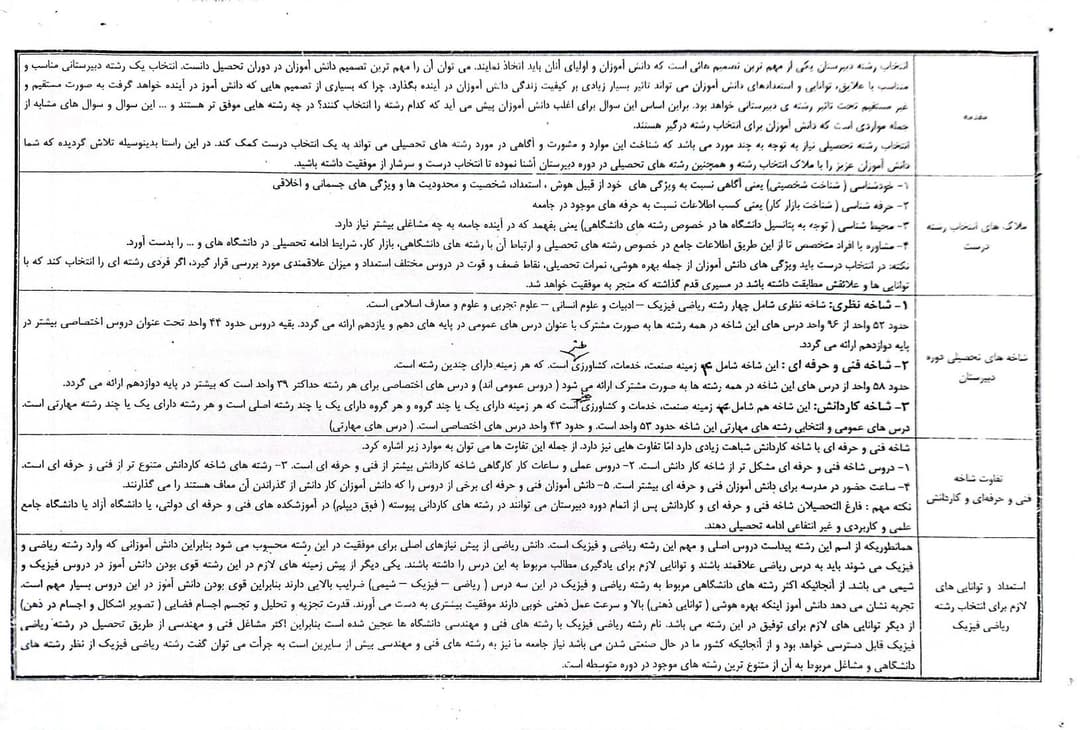 مقدمه
انتخاب رشته دبیرستان یکی از مهم ترین تصمیم هائی است که دانش آموزان و اولیای آنان باید اتخاذ نمایند. می توان آن را مهم ترین تصمیم دانش آموزان در دوران تحصیل دانست. انتخاب یک رشته دبیرستانی مناسب و
متناسب با علایق، توانایی و استعدادهای دانش آموزان می تواند تاثیر بسیار زیادی بر کیفیت زندگی دانش آموزان در آینده بگذارد. چرا که بسیاری از تصمیم هایی که دانش آموز در آینده خواهد گرفت به صورت مستقیم و
غیر مستقیم تحت تاثیر رشته ی دبیرستانی خواهد بود. براین اساس این سوال برای اغلب دانش آموزان پیش می آید که کدام رشته را انتخاب کنند؟ در چه رشته هایی موفق تر هستند و ... این سوال و سوال های مشابه از
جمله مواردی است که دانش آموزان برای انتخاب رشته درگیر هستند.
انتخاب رشته تحصیلی نیاز به توجه به چند مورد می باشد که شناخت این موارد و مشورت و آگاهی در مورد رشته های تحصیلی می تواند به یک انتخاب درست کمک کند. در این راستا بدینوسیله تلاش گردیده که شما
دانش آموزان عزیز را با ملاک انتخاب رشته و همچنین رشته های تحصیلی در دوره دبیرستان آشنا نموده تا انتخاب درست و سرشار از موفقیت داشته باشید.
ملاک های انتخاب رشته
درست
۱- خودشناسی ( شناخت شخصیتی) یعنی آگاهی نسبت به ویژگی های خود از قبیل هوش ، استعداد، شخصیت و محدودیت ها و ویژگی های جسمانی و اخلاقی
۲- حرفه شناسی ( شناخت بازار کار) یعنی کسب اطلاعات نسبت به حرفه های موجود در جامعه
۳- محیط شناسی ( توجه به پتانسیل دانشگاه ها در خصوص رشته های دانشگاهی) یعنی بفهمد که در آینده جامعه به چه مشاغلی بیشتر نیاز دارد.
۴- مشاوره با افراد متخصص تا از این طریق اطلاعات جامع در خصوص رشته های تحصیلی و ارتباط آن با رشته های دانشگاهی، بازار کار، شرایط ادامه تحصیلی در دانشگاه های و ... را بدست آورد.
نکته: در انتخاب درست باید ویژگی های دانش آموزان از جمله بهره هوشی، نمرات تحصیلی، نقاط ضعف و قوت در دروس مختلف استعداد و میزان علاقمندی مورد بررسی قرار گیرد، اگر فردی رشته ای را انتخاب کند که با
توانایی ها و علائقش مطابقت داشته باشد در مسیری قدم گذاشته که منجر به موفقیت خواهد شد.
شاخه های تحصیلی دوره
دبیرستان
۱- شاخه نظری: شاخه نظری شامل چهار رشته ریاضی فیزیک – ادبیات و علوم انسانی – علوم تجربی و علوم و معارف اسلامی است.
حدود ۵۲ واحد از ۹۶ واحد درس های این شاخه در همه رشته ها به صورت مشترک با عنوان درس های عمومی در پایه های دهم و یازدهم ارائه می گردد. بقیه دروس حدود ۴۴ واحد تحت عنوان دروس اختصاصی بیشتر در
پایه دوازدهم ارائه می گردد.
هنر
۲- شاخه فنی و حرفه ای : این شاخه شامل ۴ زمینه صنعت، خدمات، کشاورزی است. که هر زمینه دارای چندین رشته است.
حدود ۵۸ واحد از درس های این شاخه در همه رشته ها به صورت مشترک ارائه می شود ( دروس عمومی اند) و درس های اختصاصی برای هر رشته حداکثر ۳۹ واحد است که بیشتر در پایه دوازدهم ارائه می گردد.
۳- شاخه کاردانش: این شاخه هم شامل ۴ زمینه صنعت، خدمات و کشاورزی است که هر زمینه دارای یک یا چند گروه و هر گروه دارای یک یا چند رشته اصلی است و هر رشته دارای یک یا چند رشته مهارتی است.
درس های عمومی و انتخابی رشته های مهارتی این شاخه حدود ۵۳ واحد است. و حدود ۴۳ واحد درس های اختصاصی است. ( درس های مهارتی)
تفاوت شاخه
فنی و حرفه‌ای و کاردانش
شاخه فنی و حرفه ای با شاخه کاردانش شباهت زیادی دارد امّا تفاوت هایی نیز دارد. از جمله این تفاوت ها می توان به موارد زیر اشاره کرد.
۱- دروس شاخه فنی و حرفه ای مشکل تر از شاخه کار دانش است. ۲- دروس عملی و ساعات کار کارگاهی شاخه کاردانش بیشتر از فنی و حرفه ای است. ۳- رشته های شاخه کاردانش متنوع تر از فنی و حرفه ای است.
۴- ساعت حضور در مدرسه برای دانش آموزان فنی و حرفه ای بیشتر است. ۵- دانش آموزان فنی و حرفه ای برخی از دروس را که دانش آموزان کار دانش از گذراندن آن معاف هستند را می گذارنند.
نکته مهم : فارغ التحصیلان شاخه فنی و حرفه ای و کاردانش پس از اتمام دوره دبیرستان می توانند در رشته های کاردانی پیوسته ( فوق دیپلم) در آموزشکده های فنی و حرفه ای دولتی، یا دانشگاه آزاد یا دانشگاه جامع
علمی و کاربردی و غیر انتفاعی ادامه تحصیلی دهند.
استعداد و توانایی های
لازم برای انتخاب رشته
ریاضی فیزیک
همانطوریکه از اسم این رشته پیداست دروس اصلی و مهم این رشته ریاضی و فیزیک است. دانش ریاضی از پیش نیازهای اصلی برای موفقیت در این رشته محسوب می شود بنابراین دانش آموزانی که وارد رشته ریاضی و
فیزیک می شوند باید به درس ریاضی علاقمند باشند و توانایی لازم برای یادگیری مطالب مربوط به این درس را داشته باشند. یکی دیگر از پیش زمینه های لازم در این رشته قوی بودن دانش آموز در دروس فیزیک و
شیمی می باشد. از آنجائیکه اکثر رشته های دانشگاهی مربوط به رشته ریاضی و فیزیک در این سه درس ( ریاضی – فیزیک – شیمی) ضرایب بالایی دارند بنابراین قوی بودن دانش آموز در این دروس بسیار مهم است.
تجربه نشان می دهد دانش آموز اینکه بهره هوشی ( توانایی ذهنی) بالا و سرعت عمل ذهنی خوبی دارند موفقیت بیشتری به دست می آورند. قدرت تجزیه و تحلیل و تجسم اجسام فضایی ( تصویر اشکال و اجسام در ذهن)
از دیگر توانایی های لازم برای توفیق در این رشته می باشد. نام رشته ریاضی فیزیک با رشته های فنی و مهندسی دانشگاه ها عجین شده است بنابراین اکثر مشاغل فنی و مهندسی از طریق تحصیل در رشته ریاضی
فیزیک قابل دسترسی خواهد بود و از آنجائیکه کشور ما در حال صنعتی شدن می باشد نیاز جامعه ما نیز به رشته های فنی و مهندسی بیش از سایرین است به جرأت می توان گفت رشته ریاضی فیزیک از نظر رشته های
دانشگاهی و مشاغل مربوط به آن از متنوع ترین رشته های موجود در دوره متوسطه است.